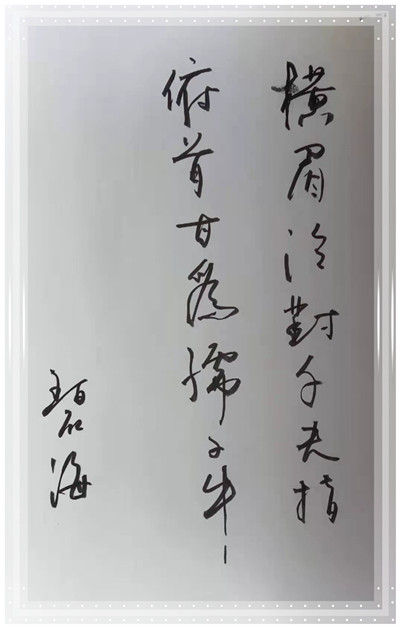 橫眉冷對千夫指
俯首甘爲孺子牛
碧海